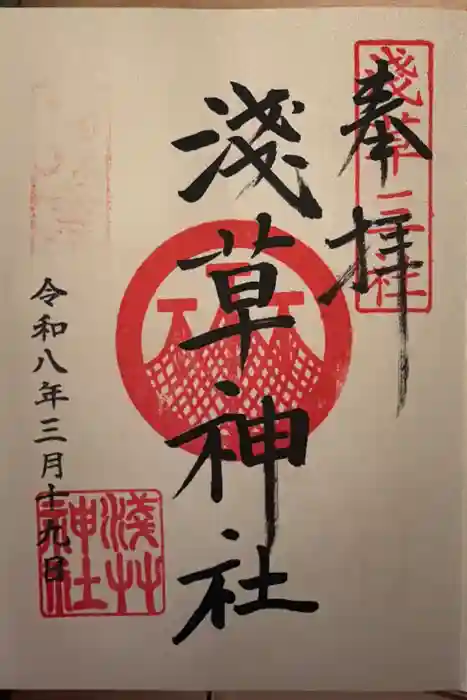 奉拝
淺草三社
淺草神社
令和八年三月十九日
淺草神社